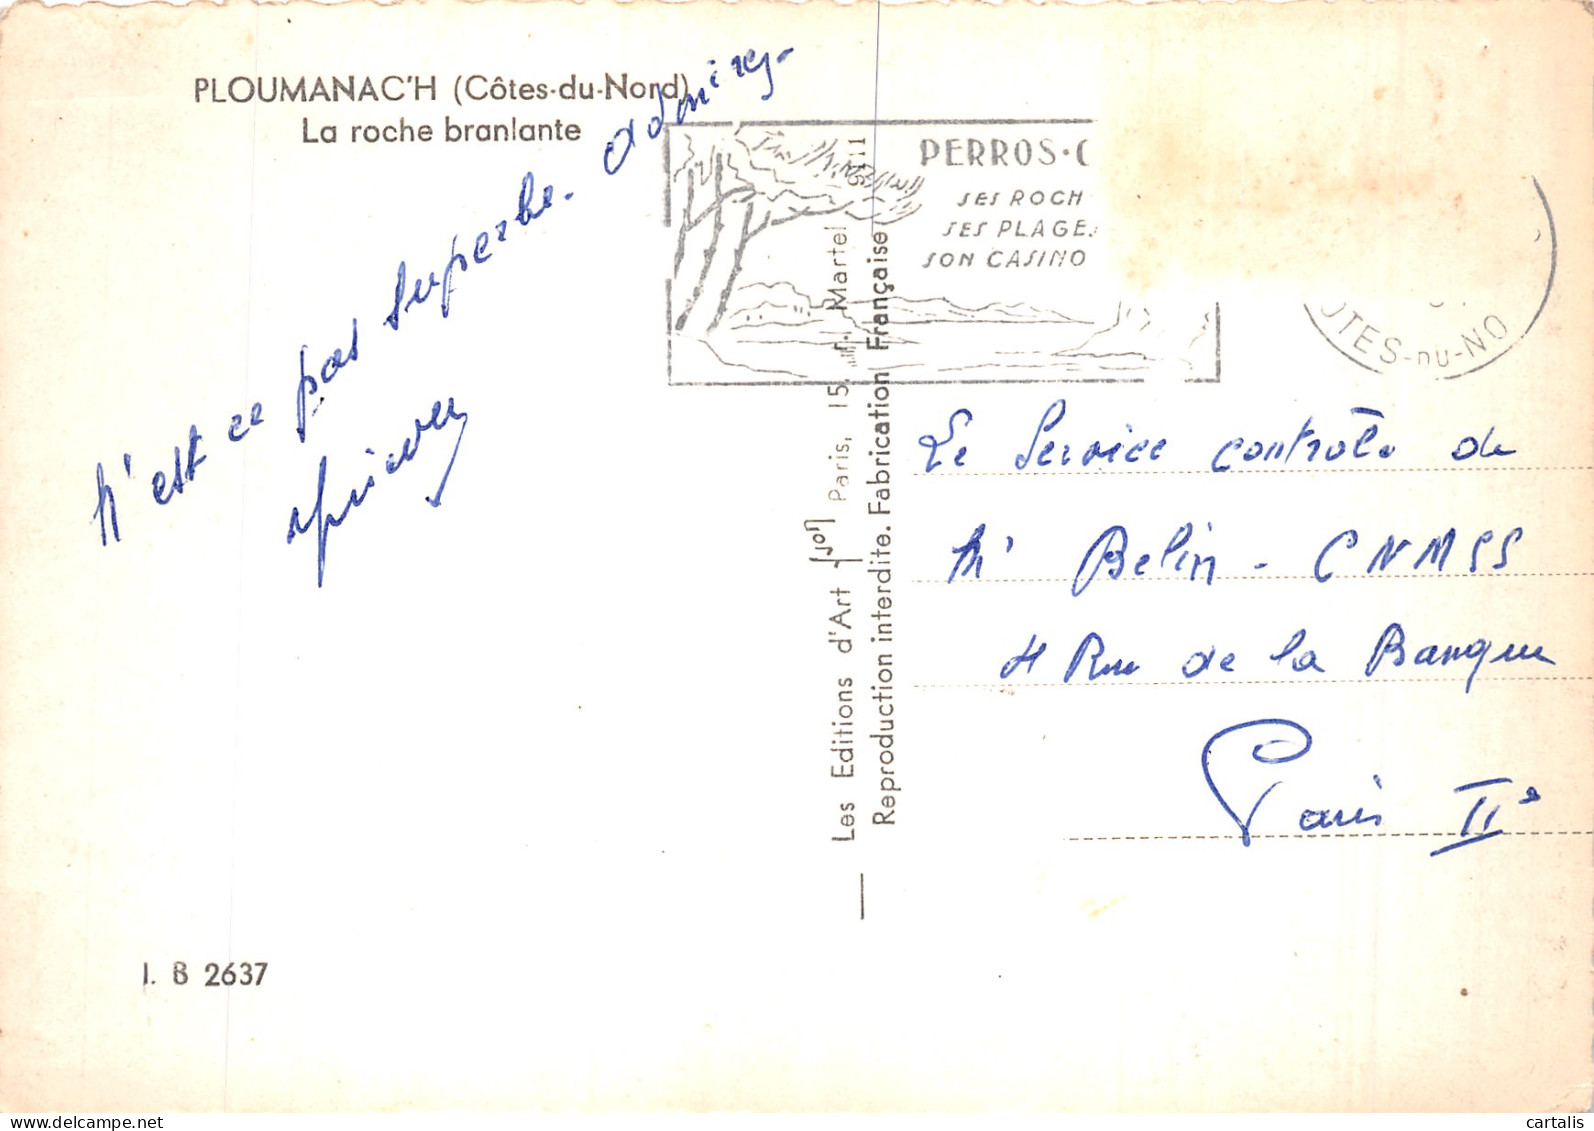 PLOUMANAC'H (Côtes-du-Nord)
La roche branlante
N'est ce pas superbe. admirez-
PERROS-G
SES ROCH
SES PLAGES
SON CASINO
OTES-DU-NO
Les Editions d'Art Jack Paris, 15, r. Martel
Reproduction interdite. Fabrication Française
Le Service contrôle de
Mr Belin - CNMSS
4 Rue de la Banque
Paris IIe
I. B 2637
cartalis - CPArama.com